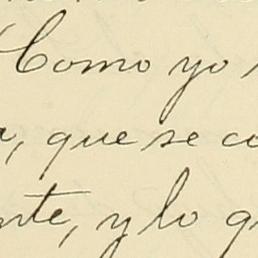 Como yo
, que se co
nte, y lo q